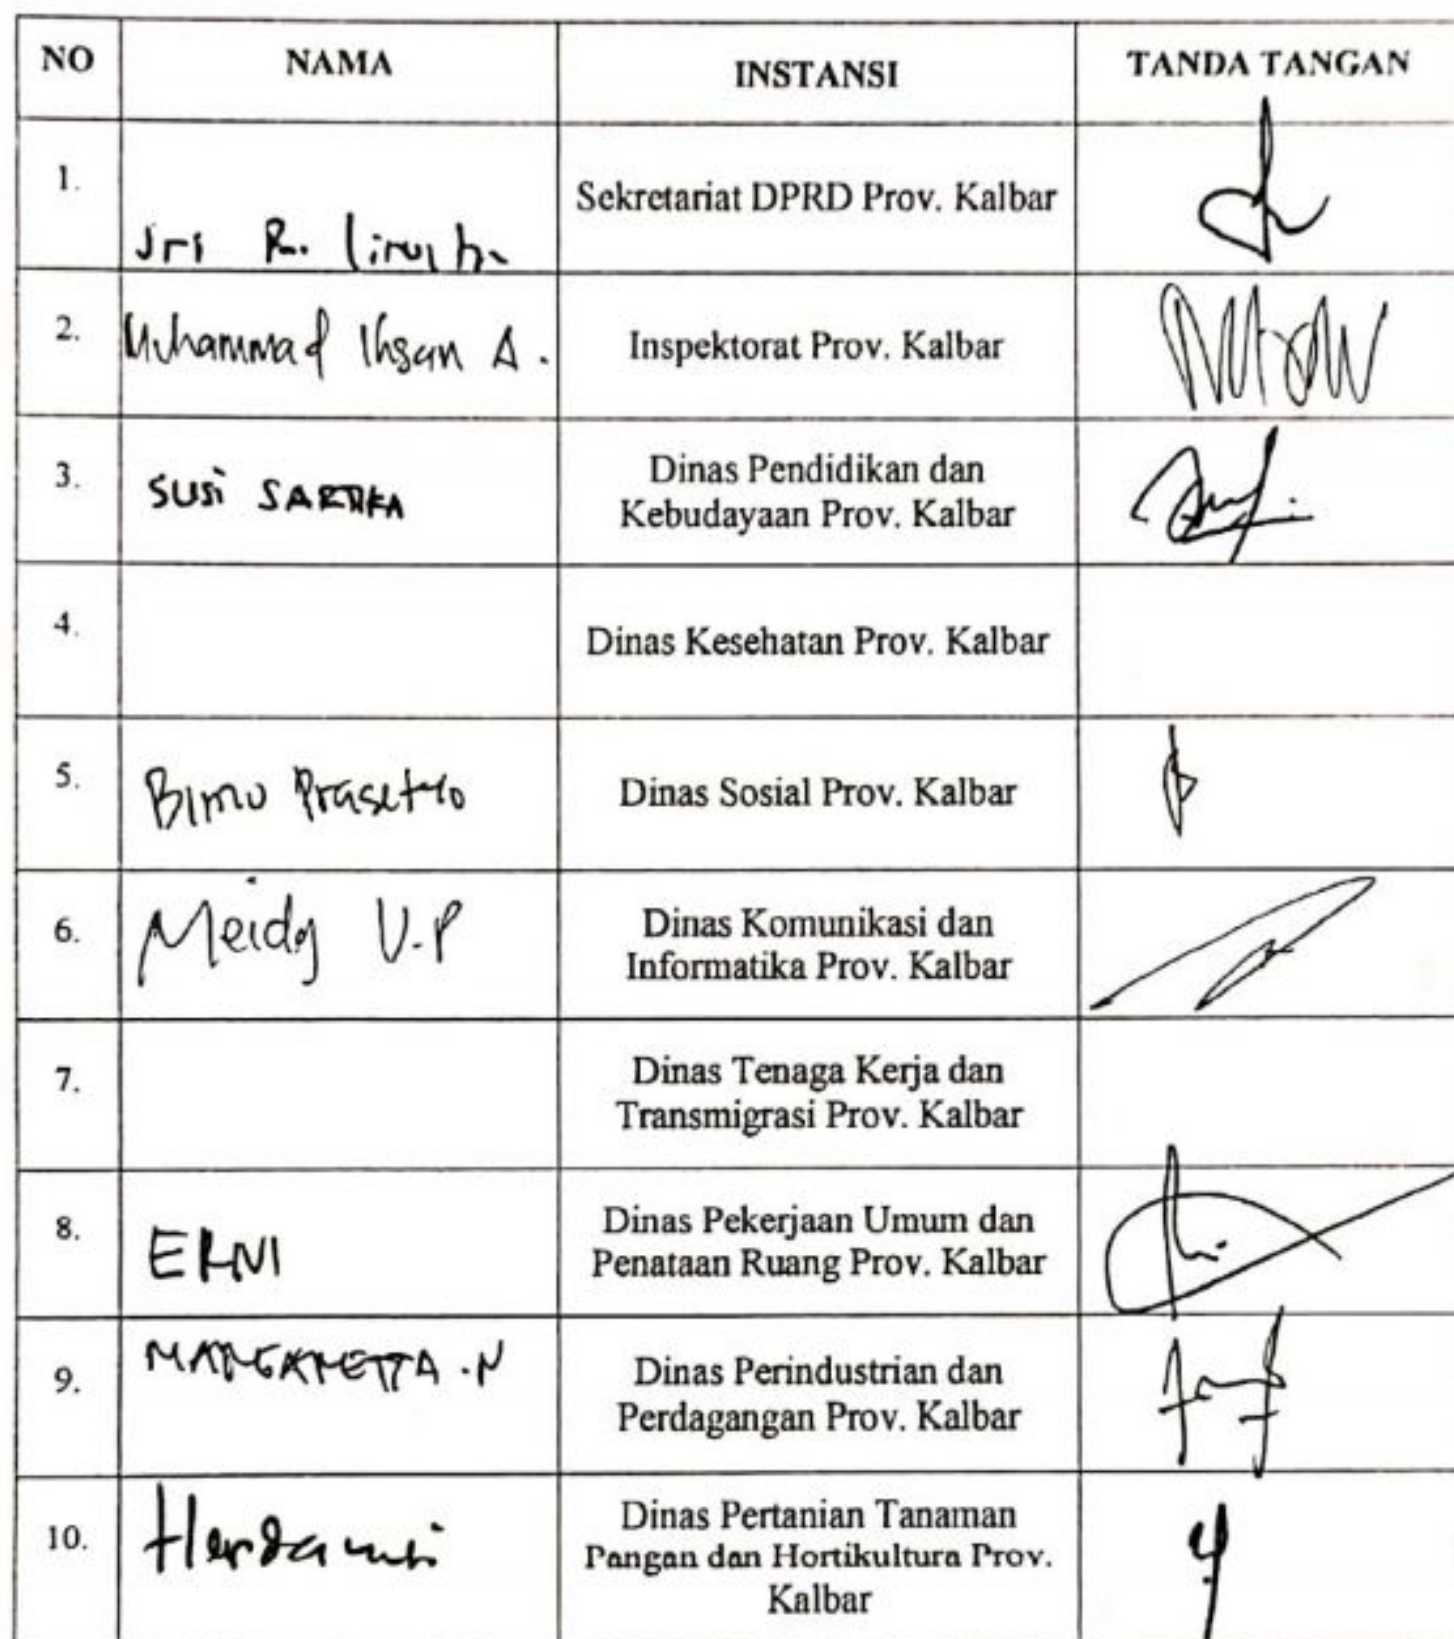 NO NAMA INSTANSI TANDA TANGAN
1. Sekretariat DPRD Prov. Kalbar
Sri R.
2. Muhammad Ihsan A. Inspektorat Prov. Kalbar
3. SUSi SARTIKA Dinas Pendidikan dan
Kebudayaan Prov. Kalbar
4. Dinas Kesehatan Prov. Kalbar
5. Bimo Prasetyo Dinas Sosial Prov. Kalbar
6. Meidy V.P Dinas Komunikasi dan
Informatika Prov. Kalbar
7. Dinas Tenaga Kerja dan
Transmigrasi Prov. Kalbar
8. ERNI Dinas Pekerjaan Umum dan
Penataan Ruang Prov. Kalbar
9. MARGARETTA .N Dinas Perindustrian dan
Perdagangan Prov. Kalbar
10. Dinas Pertanian Tanaman
Pangan dan Hortikultura Prov.
Kalbar